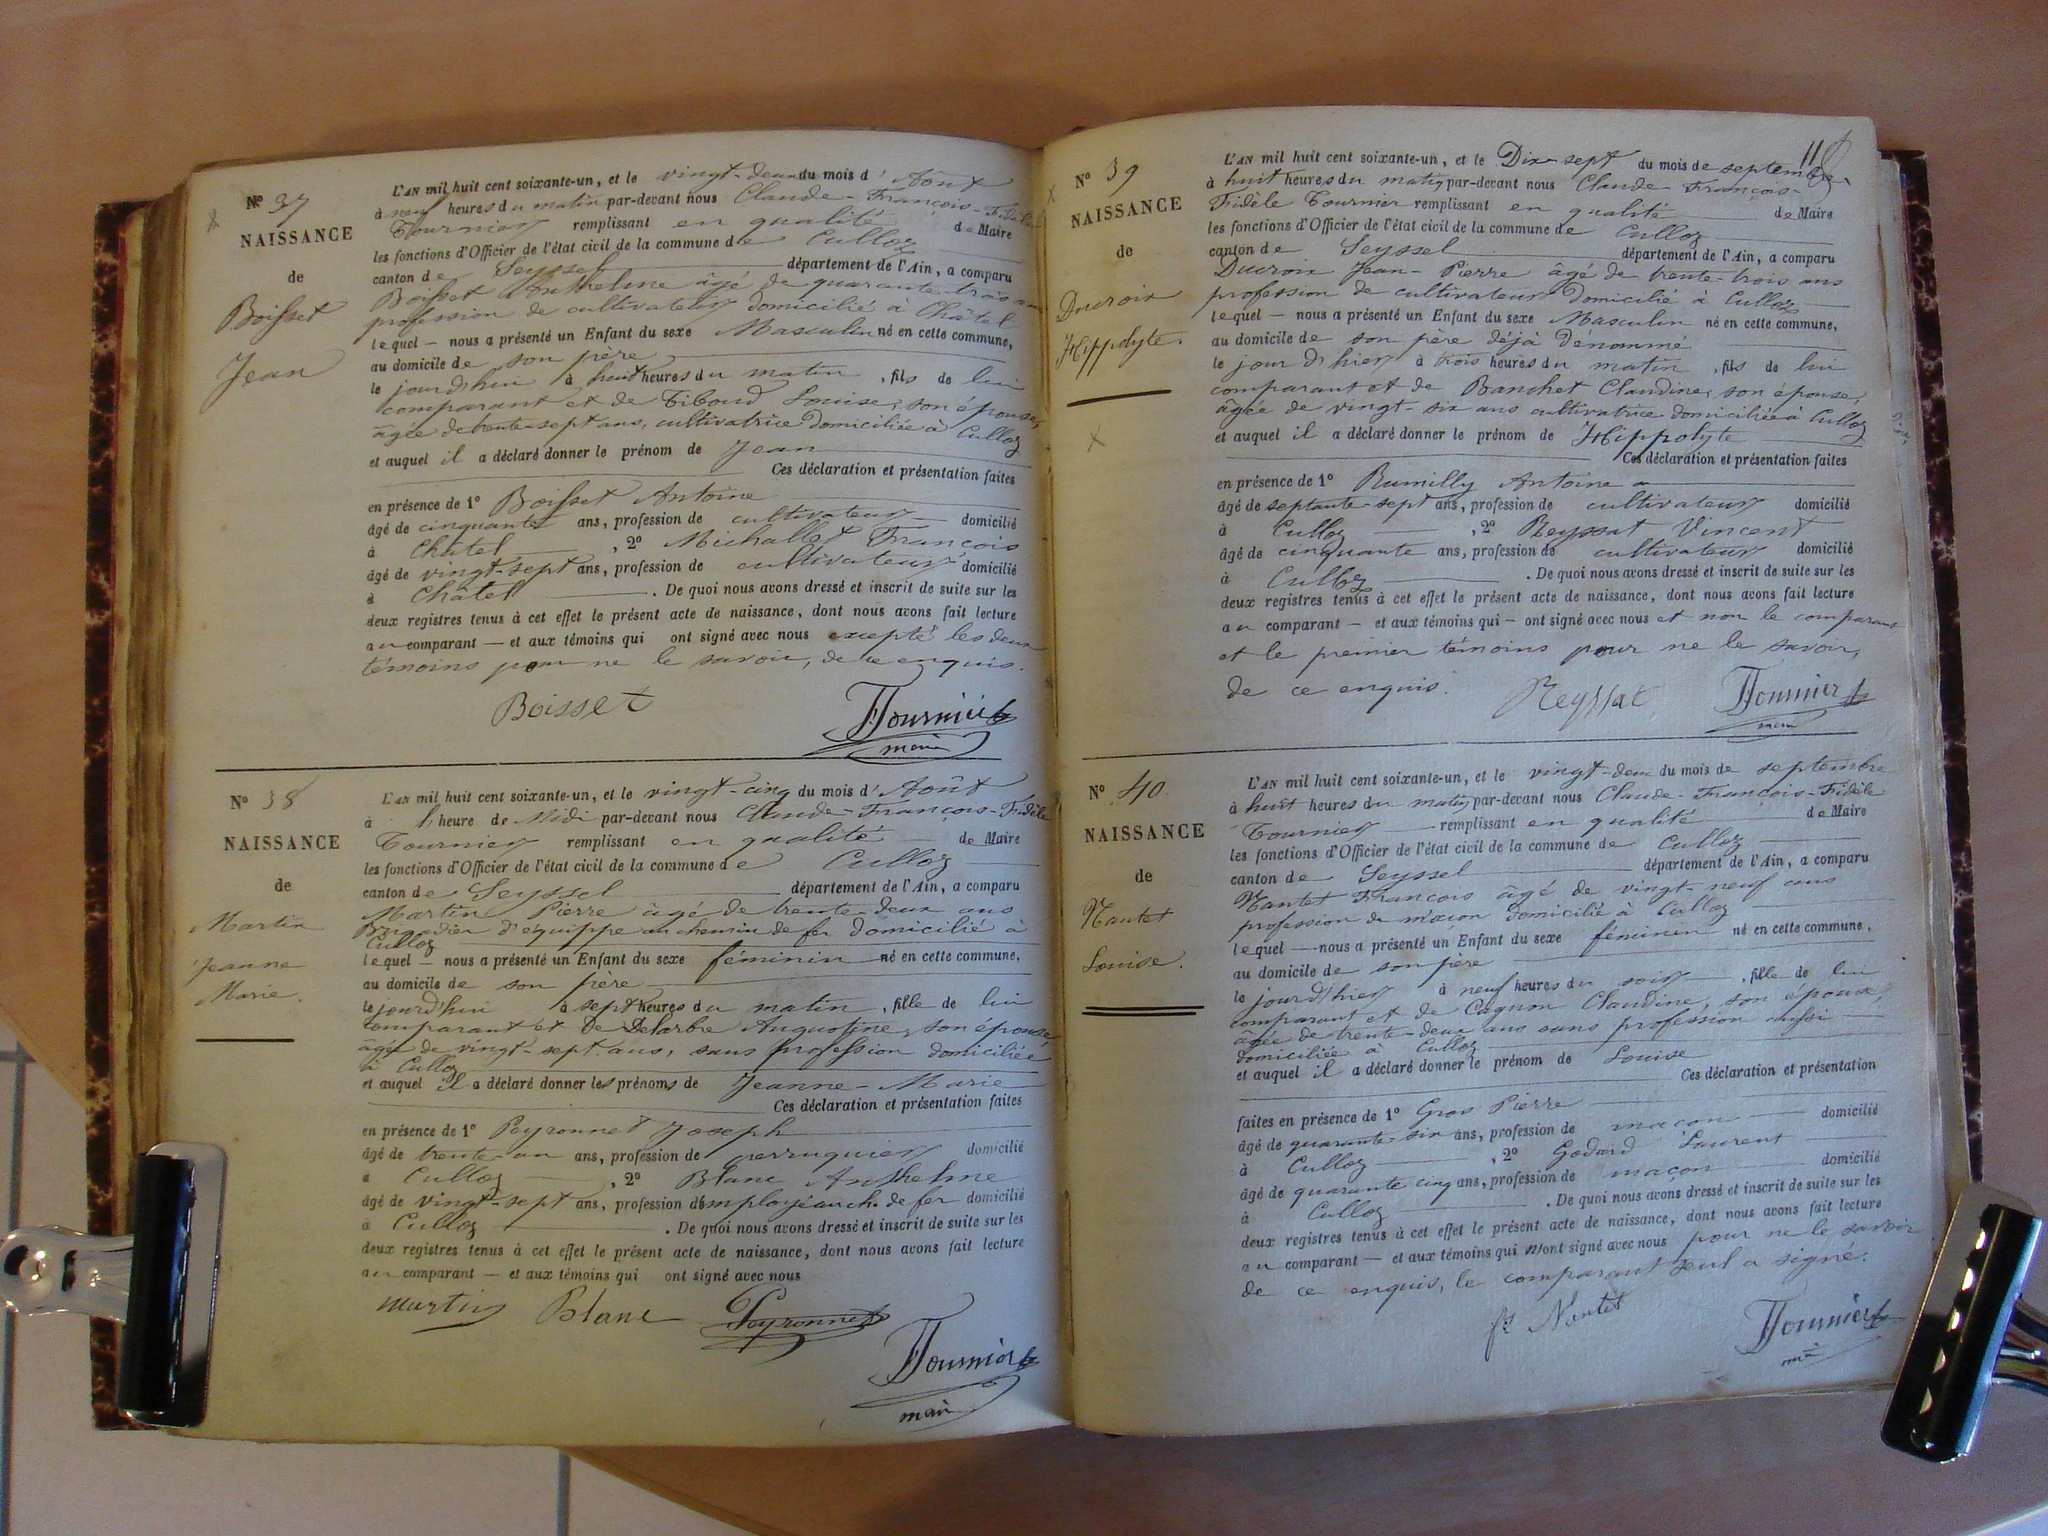 Nº 37
NAISSANCE
de
Boisset
Jean
L'AN mil huit cent soixante-un, et le vingt-deux du mois d'Août
à neuf heures du matin par-devant nous Claude-François-Fidèle
Tournier remplissant en qualité de Maire
les fonctions d'Officier de l'état civil de la commune de Culloz
canton de Seyssel département de l'Ain, a comparu
Boisset Anthelme âgé de quarante-trois ans
profession de cultivateur domicilié à Châtel
lequel — nous a présenté un Enfant du sexe Masculin né en cette commune,
au domicile de son père
le jourd'hui à huit heures du matin, fils de lui
comparant et de Tiboud Louise, son épouse,
âgée de trente-sept ans, cultivatrice domiciliée à Culloz
et auquel il a déclaré donner le prénom de Jean
Ces déclaration et présentation faites
en présence de 1º Boisset Antoine
âgé de cinquante ans, profession de cultivateur domicilié
à Châtel , 2º Michallet François
âgé de vingt-sept ans, profession de cultivateur domicilié
à Châtel . De quoi nous avons dressé et inscrit de suite sur les
deux registres tenus à cet effet le présent acte de naissance, dont nous avons fait lecture
au comparant — et aux témoins qui ont signé avec nous excepté les deux
témoins pour ne le savoir, de ce enquis.
Boisset Tournier
maire
Nº 38
NAISSANCE
de
Martin
Jeanne
Marie.
L'AN mil huit cent soixante-un, et le vingt-cinq du mois d'Août
à l'heure de Midi par-devant nous Claude-François-Fidèle
Tournier remplissant en qualité de Maire
les fonctions d'Officier de l'état civil de la commune de Culloz
canton de Seyssel département de l'Ain, a comparu
Martin Pierre âgé de trente-deux ans
Brigadier d'équippe au chemin de fer domicilié à
Culloz
lequel — nous a présenté un Enfant du sexe féminin né en cette commune,
au domicile de son père
le jourd'hui à sept heures du matin, fille de lui
comparant et de Delarbre Augustine, son épouse,
âgée de vingt-sept ans, sans profession domiciliée
à Culloz
et auquel il a déclaré donner les prénoms de Jeanne-Marie
Ces déclaration et présentation faites
en présence de 1º Peyronnet Joseph
âgé de trente-un ans, profession de perruquier domicilié
à Culloz , 2º Blanc Anthelme
âgé de vingt-sept ans, profession d'employé au ch. de fer domicilié
à Culloz . De quoi nous avons dressé et inscrit de suite sur les
deux registres tenus à cet effet le présent acte de naissance, dont nous avons fait lecture
au comparant — et aux témoins qui ont signé avec nous
Martin Blanc Peyronnet
Tournier
maire
11
Nº 39
NAISSANCE
de
Ducroix
Hippolyte.
L'AN mil huit cent soixante-un, et le Dix-sept du mois de septembre
à huit heures du matin par-devant nous Claude-François-
Fidèle Tournier remplissant en qualité de Maire
les fonctions d'Officier de l'état civil de la commune de Culloz
canton de Seyssel département de l'Ain, a comparu
Ducroix Jean-Pierre âgé de trente-trois ans
profession de cultivateur domicilié à Culloz
lequel — nous a présenté un Enfant du sexe Masculin né en cette commune,
au domicile de son père déjà dénommé
le jour d'hier à trois heures du matin, fils de lui
comparant et de Banchet Claudine, son épouse,
âgée de vingt-six ans cultivatrice domiciliée à Culloz
et auquel il a déclaré donner le prénom de Hippolyte
Ces déclaration et présentation faites
en présence de 1º Rumilly Antoine
âgé de septante-sept ans, profession de cultivateur domicilié
à Culloz , 2º Reyssat Vincent
âgé de cinquante ans, profession de cultivateur domicilié
à Culloz . De quoi nous avons dressé et inscrit de suite sur les
deux registres tenus à cet effet le présent acte de naissance, dont nous avons fait lecture
au comparant — et aux témoins qui — ont signé avec nous et non le comparant
et le premier témoins pour ne le savoir,
de ce enquis. Reyssat Tournier
maire
Nº 40.
NAISSANCE
de
Nantet
Louise.
L'AN mil huit cent soixante-un, et le vingt-deux du mois de septembre
à huit heures du matin par-devant nous Claude-François-Fidèle
Tournier — remplissant en qualité de Maire
les fonctions d'Officier de l'état civil de la commune de Culloz
canton de Seyssel département de l'Ain, a comparu
Nantet François âgé de vingt-neuf ans
profession de maçon domicilié à Culloz
lequel — nous a présenté un Enfant du sexe féminin né en cette commune,
au domicile de son père
le jour d'hier à neuf heures du soir, fille de lui
comparant et de Cagnon Claudine, son épouse,
âgée de trente-deux ans sans profession aussi
domiciliée à Culloz
et auquel il a déclaré donner le prénom de Louise
Ces déclaration et présentation
faites en présence de 1º Gros Pierre
âgé de quarante-six ans, profession de maçon domicilié
à Culloz , 2º Godard Laurent
âgé de quarante cinq ans, profession de maçon domicilié
à Culloz . De quoi nous avons dressé et inscrit de suite sur les
deux registres tenus à cet effet le présent acte de naissance, dont nous avons fait lecture
au comparant — et aux témoins qui n'ont signé avec nous pour ne le savoir
de ce enquis, le comparant seul a signé.
fs Nantet Tournier
maire